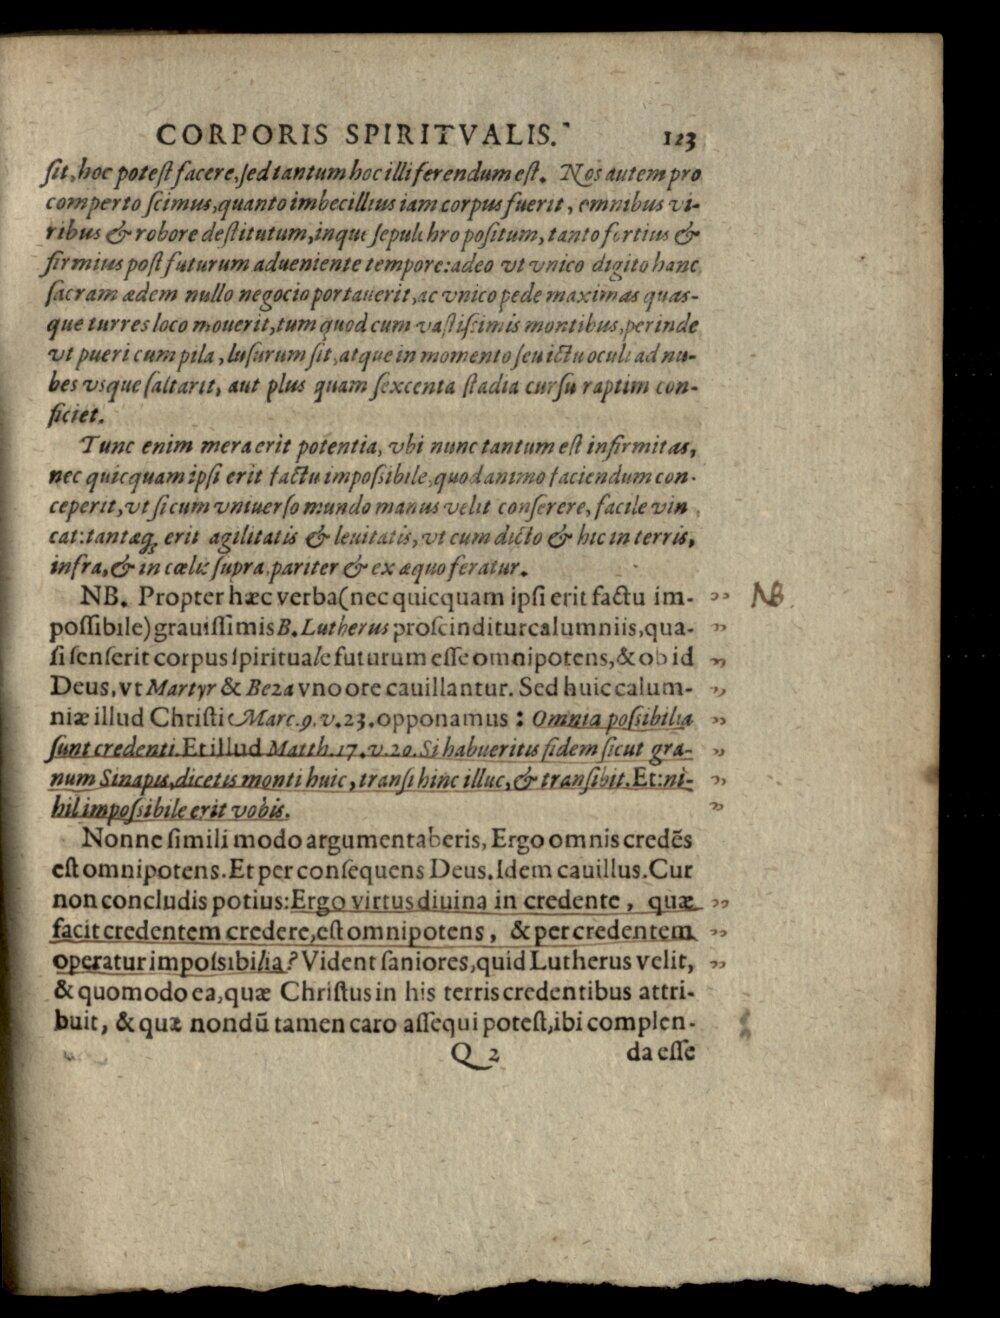 CORPORIS SPIRITVALIS. 123
ſit, hoc poteſt facere, ſed tantum hoc illi ferendum eſt. Nos autem pro
comperto ſcimus, quanto imbecillius iam corpus fuerit, omnibus vi-
ribus & robore deſtitutum, inque ſepulchro poſitum, tanto fortius &
firmius poſt futurum adueniente tempore: adeo vt vnico digito hanc
ſacram ædem nullo negocio portauerit, ac vnico pede maximas quas-
que turres loco mouerit, tum quod cum vaſtiſsimis montibus, perinde
vt pueri cum pila, luſurum ſit, atque in momento ſeu ictu oculi ad nu-
bes vsque ſaltarit, aut plus quam ſexcenta ſtadia curſu raptim con-
ficiet.
Tunc enim mera erit potentia, vbi nunc tantum eſt infirmitas,
nec quicquam ipſi erit factu impoſsibile, quod animo faciendum con-
ceperit, vt ſi cum vniuerſo mundo manus velit conſerere, facile vin
cat: tantæq; erit agilitatis & leuitatis, vt cum dicto & hic in terris,
infra, & in cœlis ſupra, pariter & ex æquo feratur.
NB. Propter hæc verba (nec quicquam ipſi erit factu im- ,, NB
poſſibile) grauiſſimis B. Lutherus proſcinditur calumniis, qua- ,,
ſi ſenſerit corpus ſpirituale futurum eſſe omnipotens, & ob id ,,
Deus, vt Martyr & Beza vno ore cauillantur. Sed huic calum- ,,
niæ illud Chriſti Marc. 9. v. 23. opponamus: Omnia poſsibilia ,,
ſunt credenti. Et illud Matth. 17. v. 20. Si habueritis fidem ſicut gra- ,,
num Sinapis, dicetis monti huic, tranſi hinc illuc, & tranſibit. Et: ni- ,,
hil impoſsibile erit vobis. ,,
Nonne ſimili modo argumentaberis, Ergo omnis credēs
eſt omnipotens. Et per conſequens Deus. Idem cauillus. Cur
non concludis potius: Ergo virtus diuina in credente, quæ ,,
facit credentem credere, eſt omnipotens, & per credentem ,,
operatur impoſsibilia? Vident ſaniores, quid Lutherus velit, ,,
& quomodo ea, quæ Chriſtus in his terris credentibus attri-
buit, & quæ nondū tamen caro aſſequi poteſt, ibi complen-
Q 2 da eſſe